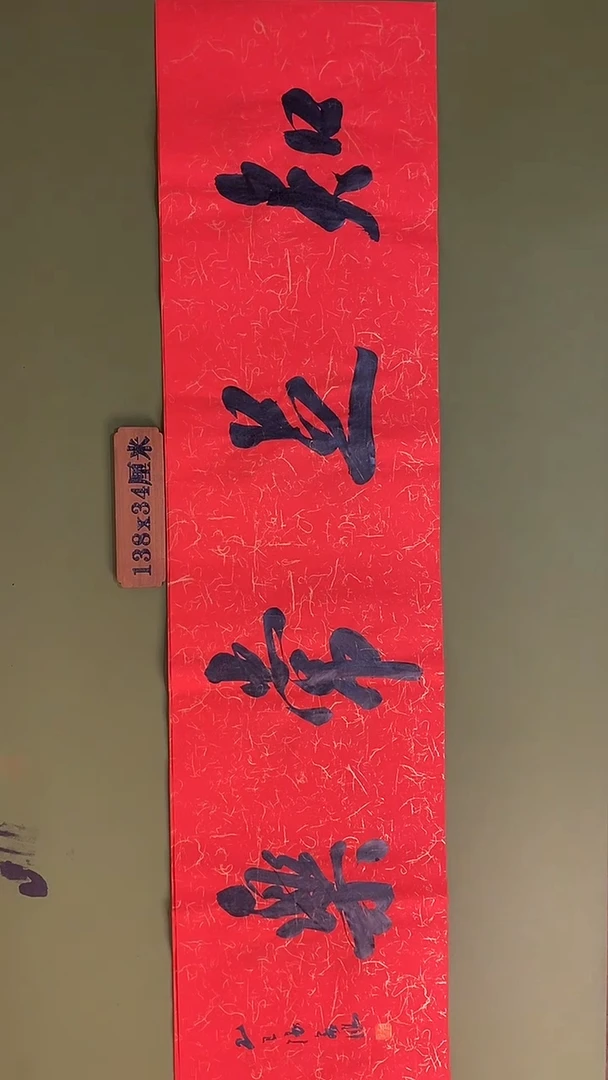 知足常樂
138x34厘米